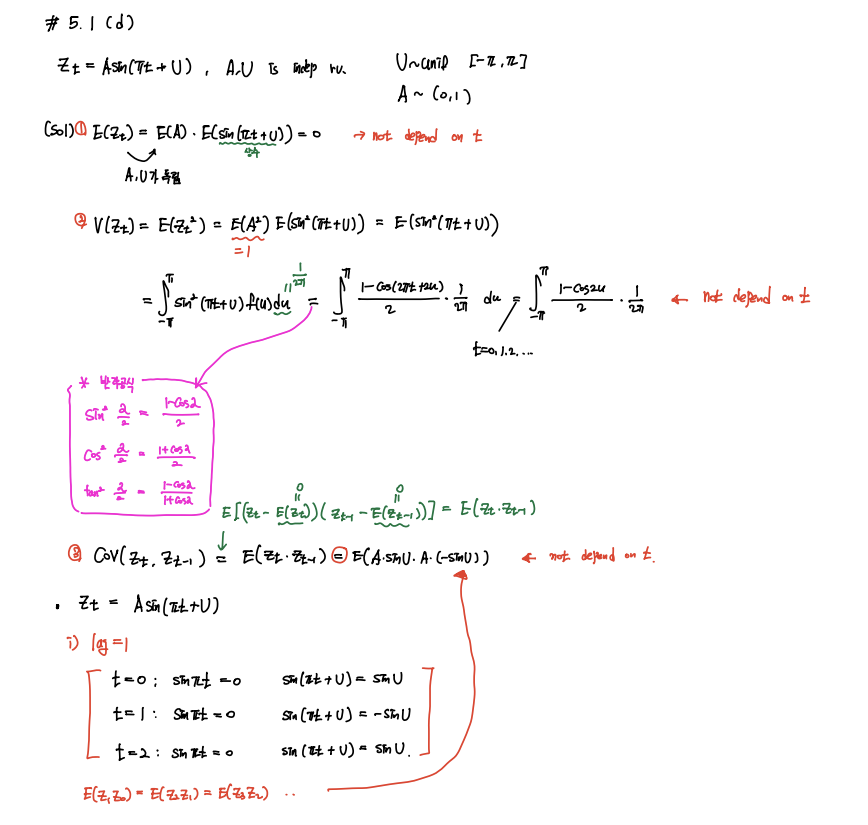 # 5.1 (d)
Zt = Asin(πt + U) , A.U is indep r.v. U~unif [-π, π]
A ~ (0,1)
(sol) ① E(Zt) = E(A) · E(sin(πt+U)) = 0 → not depend on t
상수
A, U가 독립
② V(Zt) = E(Zt²) = E(A²) E(sin²(πt+U)) = E(sin²(πt+U))
=1
= ∫_{-π}^{π} sin²(πt+U) f(u) du = ∫_{-π}^{π} (1-cos(2πt+2u))/2 · 1/2π du = ∫_{-π}^{π} (1-cos2u)/2 · 1/2π ← not depend on t
" 1/2π
t=0,1,2,...
* 반각공식
sin² α/2 = (1-cosα)/2
cos² α/2 = (1+cosα)/2
tan² α/2 = (1-cosα)/(1+cosα)
0 0
E[(Zt - E(Zt))(Zt-1 - E(Zt-1))] = E(Zt·Zt-1)
③ Cov(Zt, Zt-1) = E(Zt·Zt-1) = E(A·sinU·A·(-sinU)) ← not depend on t.
· Zt = Asin(πt+U)
i) lag=1
t=0 ; sinπt = 0 sin(πt+U) = sinU
t=1 : sinπt = 0 sin(πt+U) = -sinU
t=2 : sinπt = 0 sin(πt+U) = sinU.
E(Z1Z0) = E(Z2Z1) = E(Z3Z2) ..